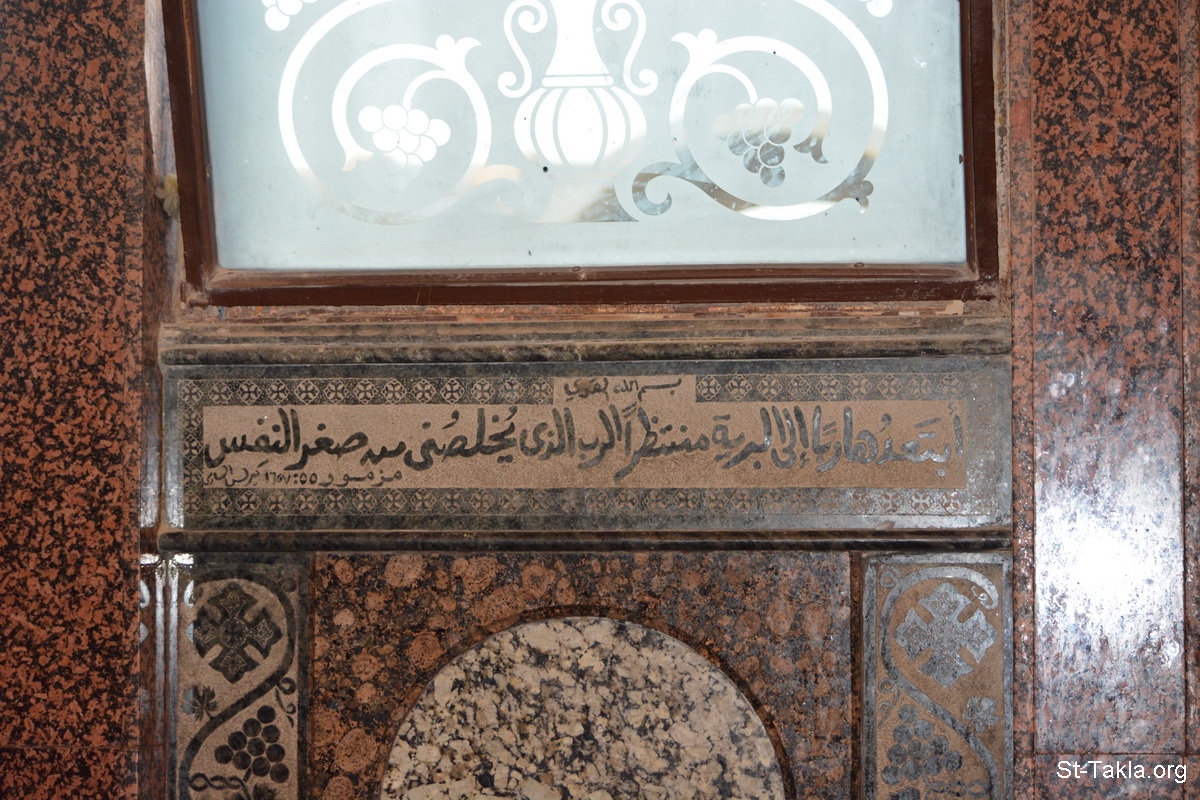 بسم الله القوي
أبتَعدُ هاربًا إلى البرية منتظرًا الرب الذى يُخلصُنى من صغر النفس
مزمور ٥٥:
St-Takla.org